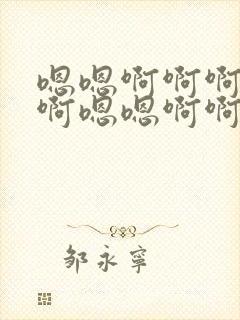 嗯嗯啊啊啊
啊嗯嗯啊啊
邹永宁